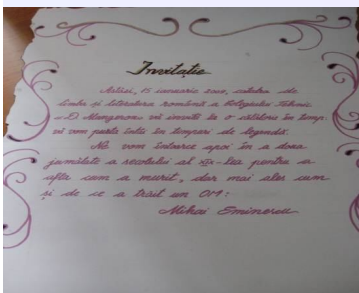 Invitaţie
Astăzi, 15 ianuarie 2010, catedra de
limba şi literatura română a Colegiului Tehnic
"D. Mangeron" vă invită la o călătorie în timp:
vă vom purta întâi în timpuri de legendă.
Ne vom întoarce apoi în a doua
jumătate a secolului al XIX-lea pentru a
afla cum a murit, dar mai ales cum
şi de ce a trăit un OM:
Mihai Eminescu